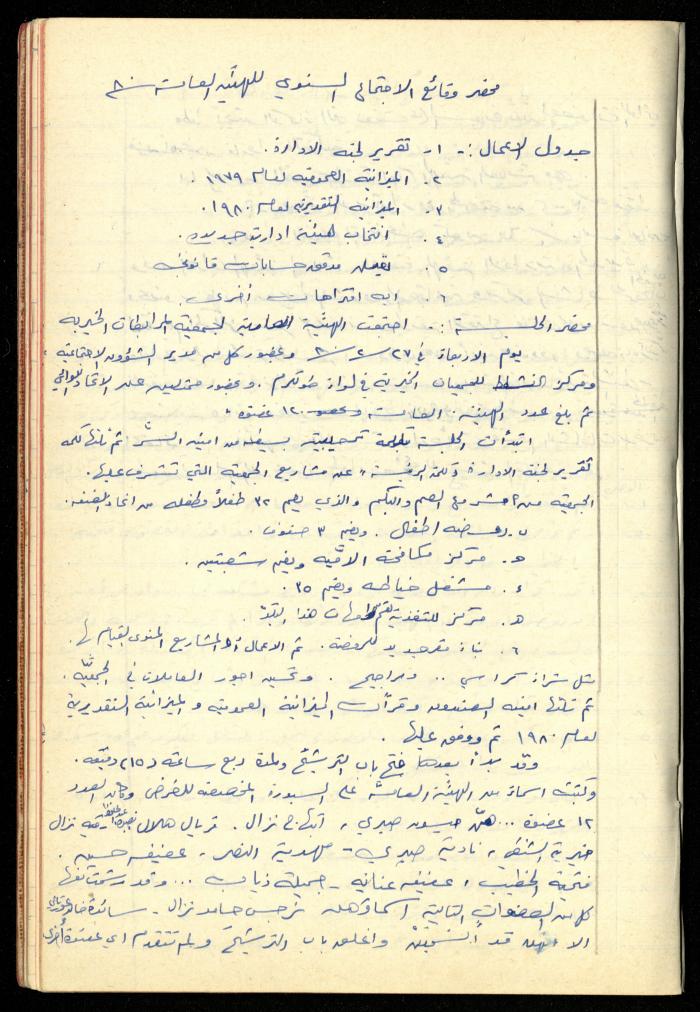 محضر وقائع الاجتماع السنوي للهيئة العامة ٨٠
جدول الاعمال :- ١- تقرير لجنة الادارة .
٢. الميزانية العمومية لعام ١٩٧٩ .
٣. الميزانية التقديرية لعام ١٩٨٠ .
٤. انتخاب هيئة ادارية جديدة .
٥. تعيين مدقق حسابات قانوني
٦. اية اقتراحات أخرى .
محضر الجلسة :- اجتمعت الهيئة العامة لجمعية المرابطات الخيرية
يوم الاربعاء في ٢٧ / ٢ / ٨٠ وبحضور كل من مدير الشؤون الاجتماعية
ومركز النشاط للجمعيات الخيرية في لواء طولكرم . وبحضور ممثلين عن الاتحاد اللوائي
ثم بلغ عدد الهيئة العامة ١٢٠ عضوة .
ابتدأت الجلسة بكلمة ترحيبية بسيطة من امينة السر ثم تلتها كلمة
تقرير لجنة الادارة " كلمة الرئيسة " عن مشاريع الجمعية التي تشرف عليها .
الجمعية من مشروع الصم والبكم والذي يضم ٣٢ طفلا وطفلة من انحاء الضفة .
ب. روضة اطفال . ويضم ٣ صفوف .
ج. مركز مكافحة الامية ويضم شعبتين .
د. مشغل خياطة ويضم ٣٥
ه. مركز للتغذية هذا البلد .
٦. بناء مقر جديد للروضة . ثم الاعمال أو المشاريع المنوي القيام بها .
مثل شراء كراسي .. ومراجيح . وتحسين اجور العاملات في الجمعية .
ثم تلتها امينة الصندوق وقرأت الميزانية العمومية والميزانية التقديرية
لعام ١٩٨٠ ثم ووفق عليها .
وقد بدأ بعدها فتح باب الترشيح ولمدة ربع ساعة (١٥) دقيقة .
وكتبت اسماء من الهيئة العامة على السبورة المخصصة للغرض وكان العدد
١٢ عضوة ... هن ميسون صبري ، ابتهاج نزال . فريال هلال نزال
خيرية الشنطي ، نادية صبري - مهدية النصر - عفيفة حسين .
فتحية الخطيب ، عفيفة عناية - جميلة ذياب ... وقد رشحت نفسها
كل من العضوات التالية اسماؤهن نرجس حامد نزال - سائدة
الا انهن قد انسحبن واغلق باب الترشيح ولم تتقدم اي عضوة أخرى